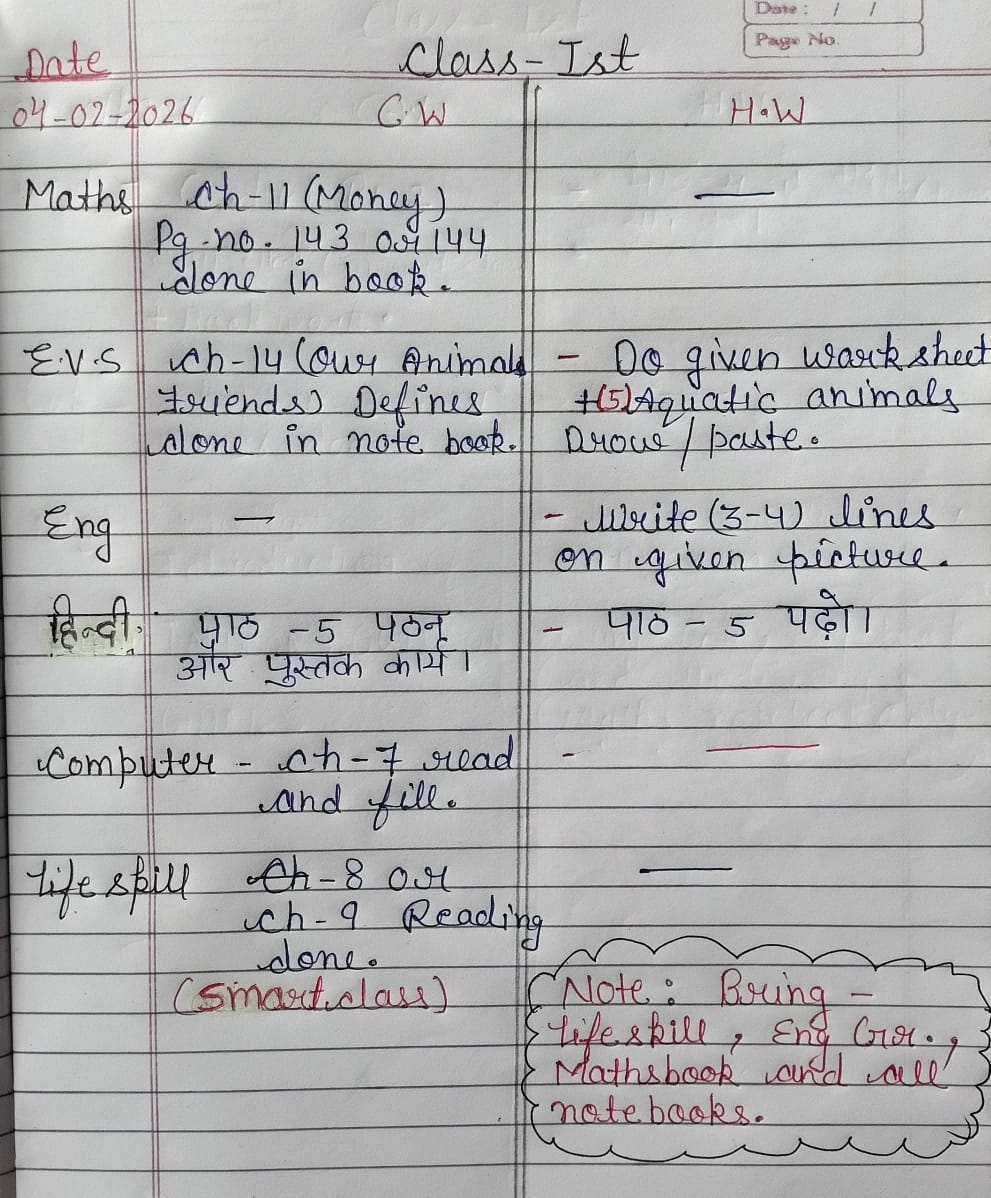 Date : / /
Page No.
Class-Ist
Date
04-02-2026
C.W
H.W
Maths
Ch-11 (Money)
Pg.no. 143 or 144
done in book.
—
E.V.S
Ch-14 (Our Animals
Friends) Defines
done in note book.
- Do given wark sheet
+(5) Aquatic animals
Drow / paste.
Eng
—
- Write (3-4) lines
on given picture.
हिन्दी:
पाठ -5 पठन
और पुस्तक कार्य।
- पाठ - 5 पढ़ो।
Computer - Ch-7 read
and fill.
- —
Life skill
Ch-8 or
Ch-9 Reading
done.
(Smart class)
—
Note: Bring -
Life skill, Eng Gr.,
Mathsbook and all
note books.